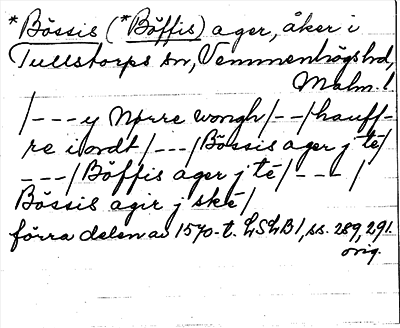 *Bössis (*Böffis) ager, åker i
Tullstorps sn, Vemmenhögs hd,
Malm. l.
/---y Nørre wongh/--/hauff-
re iordt/---/Bössis ager j té/
---/Böffis ager j té/---/
Bössis agir j ské/
förra delen av 1570-t. LSLB 1, ss. 289, 291.
orig.